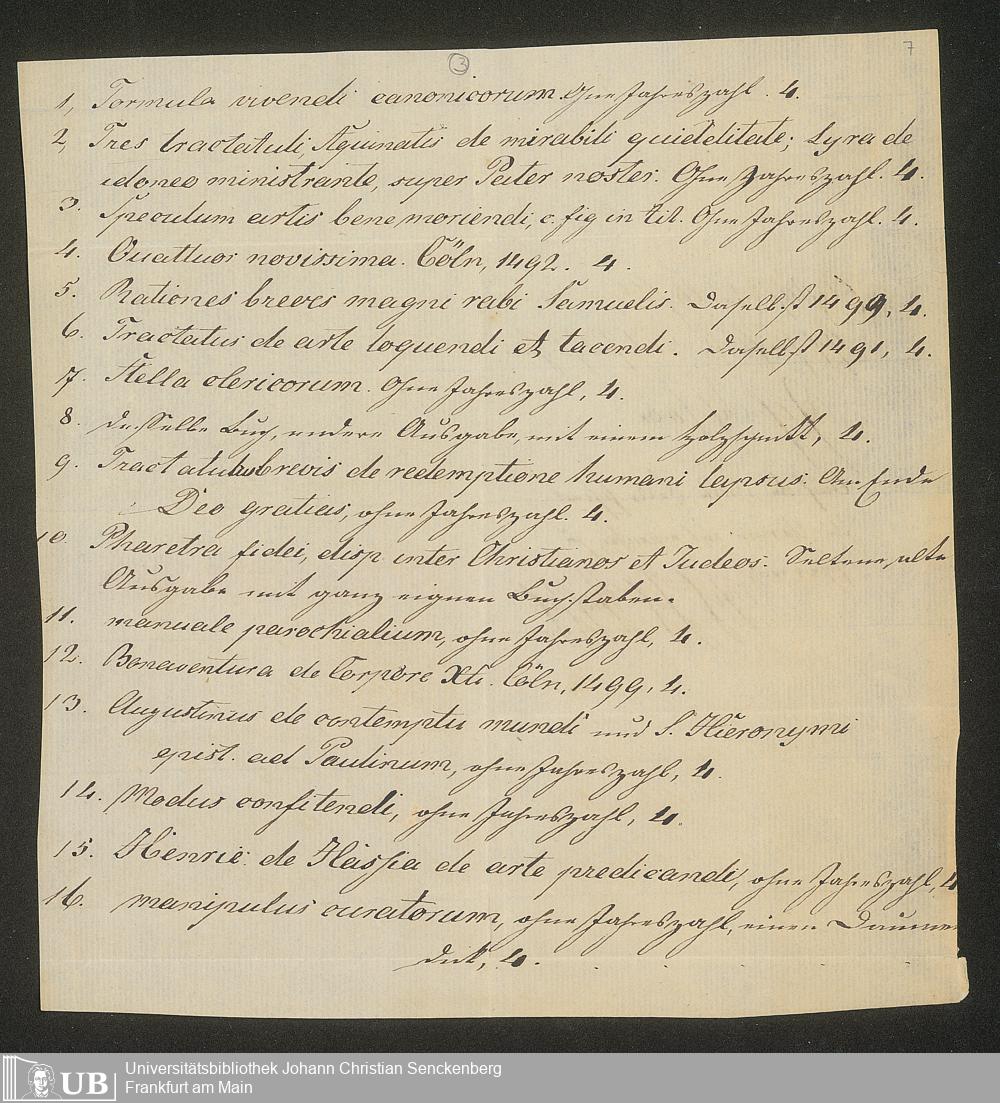 3
7
1, Formula vivendi canonicorum. Ohne Jahreszahl. 4.
2, Tres tractatuli, Aquinatis de mirabili quiditate; Lyra de
idoneo ministrante, super Pater noster. Ohne Jahreszahl. 4.
3. Speculum artis bene moriendi, c. fig in tit. Ohne Jahreszahl. 4.
4. Quattuor novissima. Cöln, 1492. 4.
5. Rationes breves magni rabi Samuelis. Daselbst 1499, 4.
6. Tractatus de arte loquendi et tacendi. Daselbst 1491, 4.
7. Stella clericorum. Ohne Jahreszahl, 4.
8. Dasselbe Buch, andere Ausgabe, mit einem Holzschnitt, 4.
9. Tractatulus brevis de redemptione humani lapsus. Am Ende
Deo gratias, ohne Jahreszahl. 4.
10. Pharetra fidei, disp. inter Christianos et Judeos. Seltene, alte
Ausgabe mit ganz eignen Buchstaben.
11. manuale parochialium, ohne Jahreszahl, 4.
12. Bonaventura de Corpore Xti. Cöln, 1499, 4.
13. Augustinus de contemptu mundi und S. Hieronymi
epist. ad Paulinum, ohne Jahreszahl, 4.
14. Modus confitendi, ohne Jahreszahl, 4.
15. Henric. de Hassia de arte predicandi, ohne Jahreszahl, 4
16. manipulus curatorum, ohne Jahreszahl, einen Daumen
dick, 4.
UB
Universitätsbibliothek Johann Christian Senckenberg
Frankfurt am Main